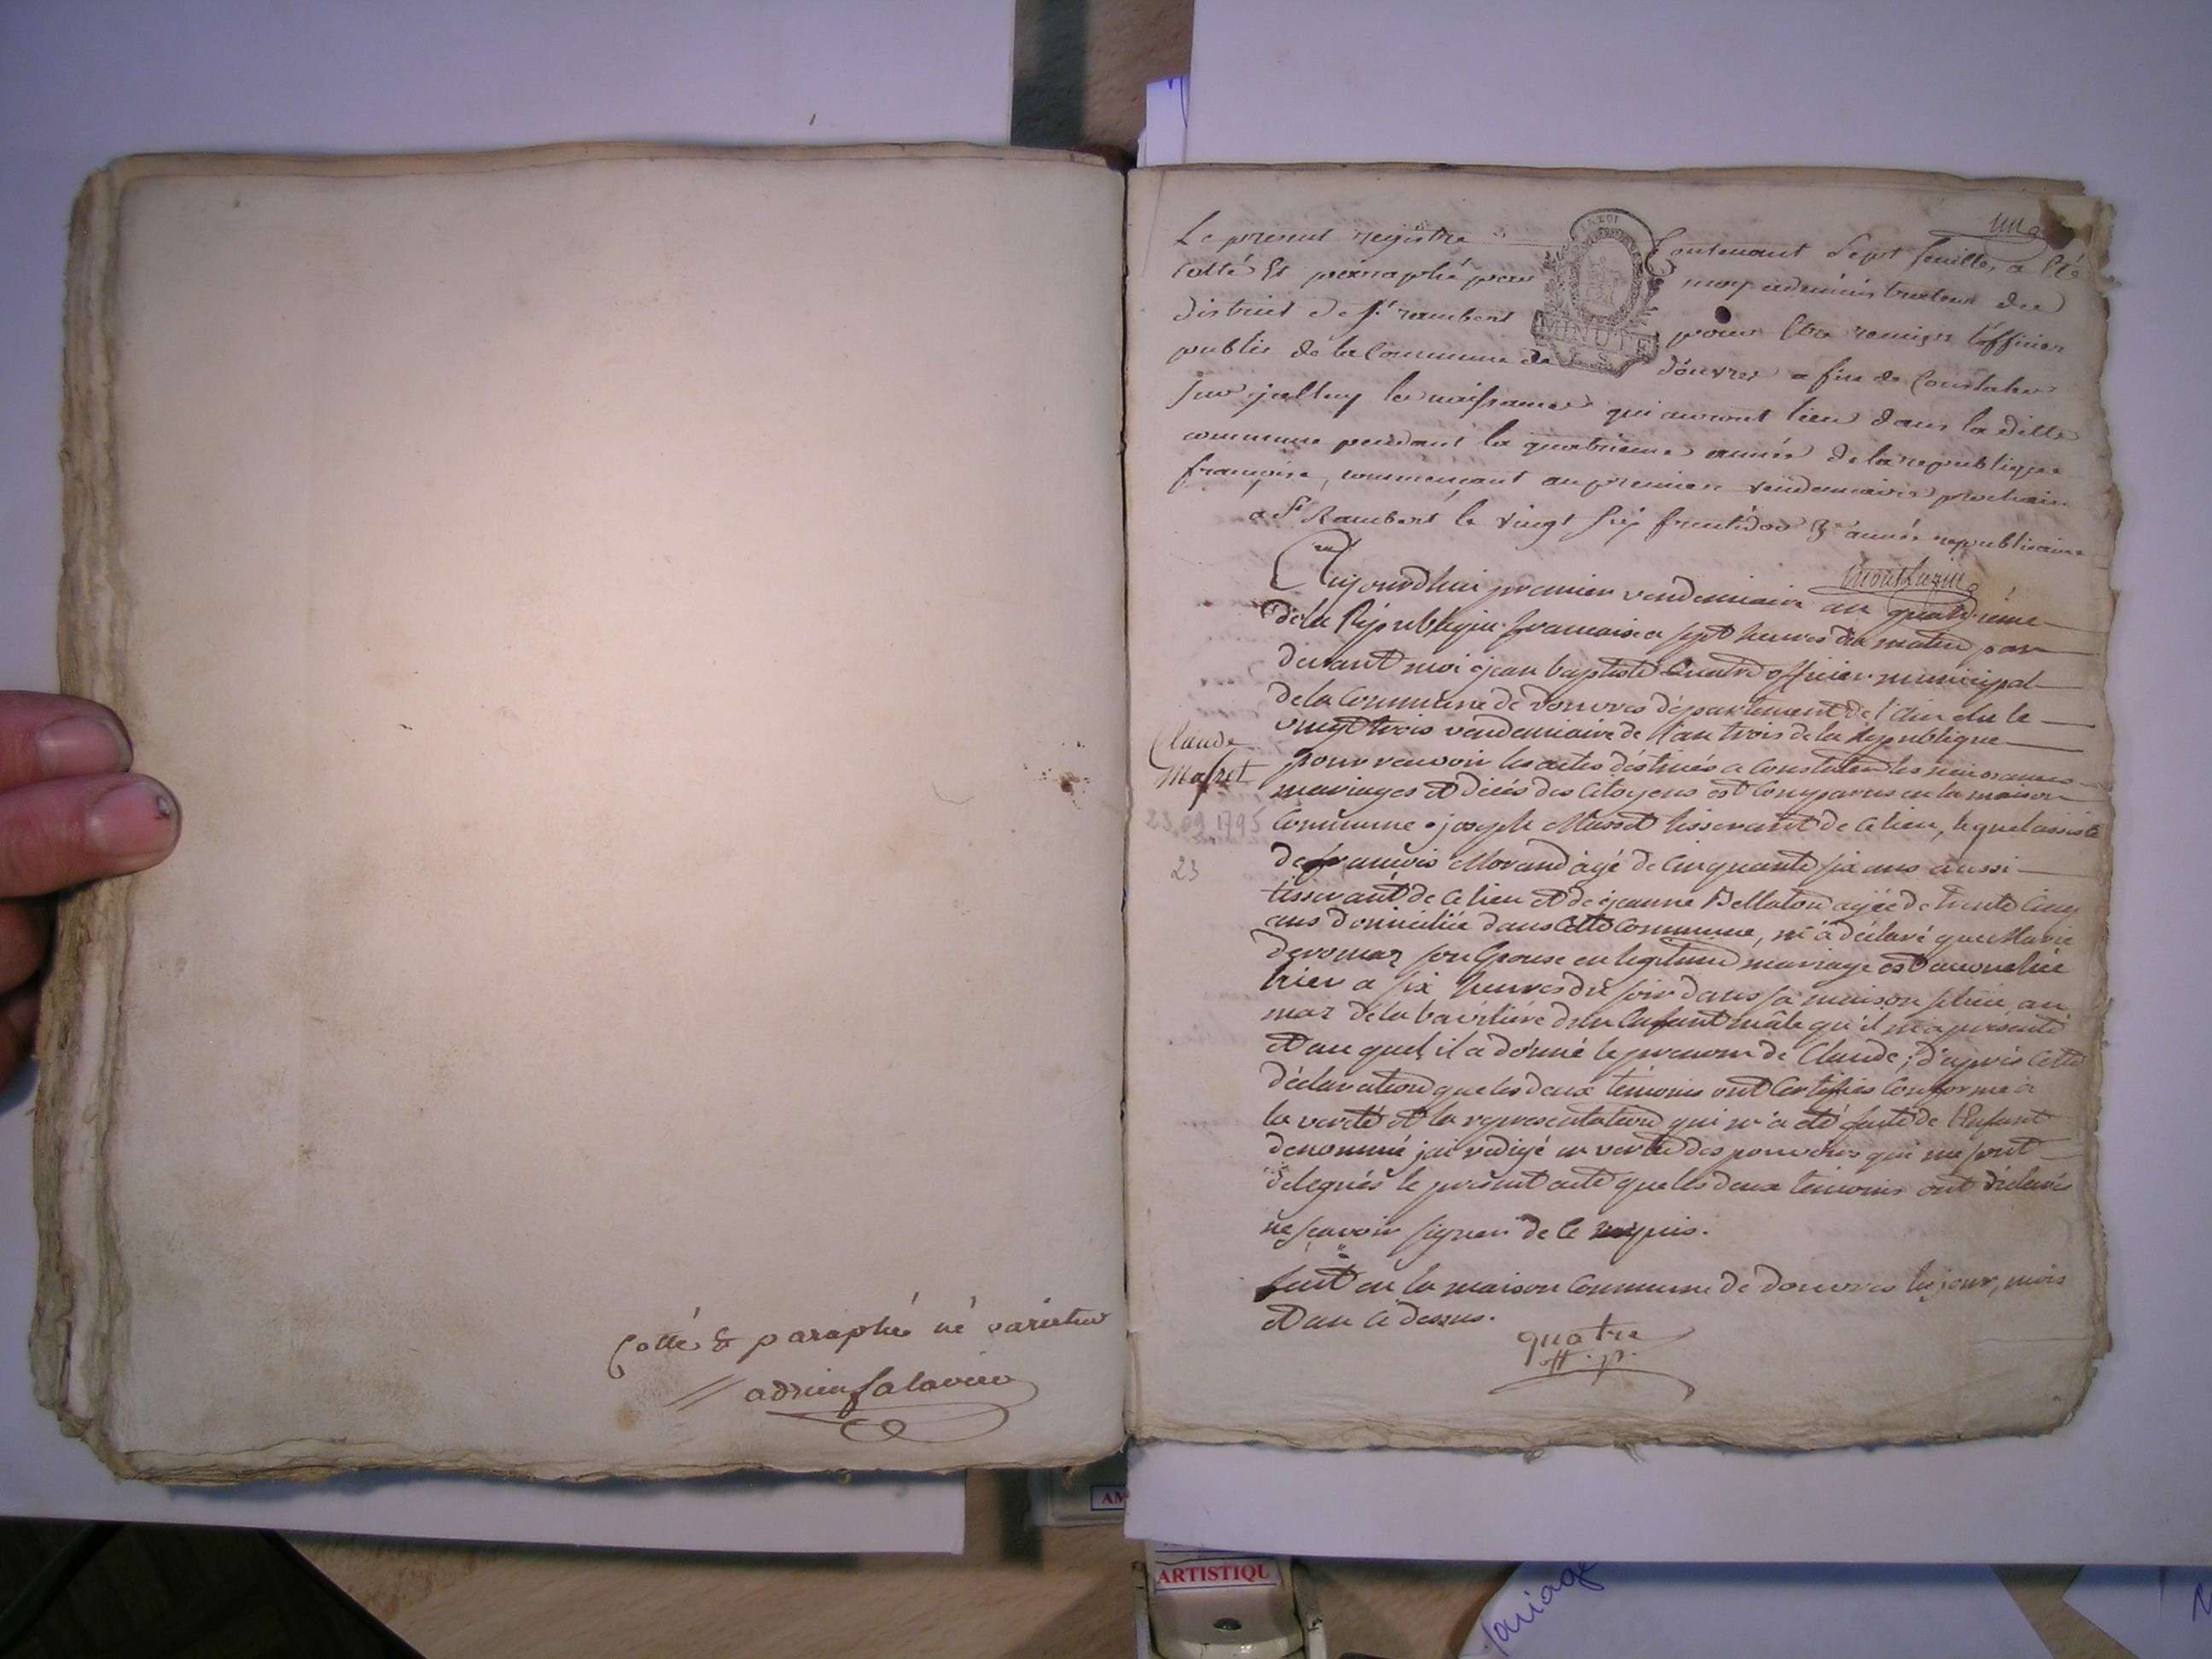 Cotté & paraphé ne varietur
adrien Salavier
un
Le present registre Contenant Sept feuilles a été
cotté Et parraphé par moy administrateur du
district de St rambert pour Etre remis a l'officier
public de la Commune de douvres a fin de Constater
sur jcelluy les naissances qui auront lieu dans la ditte
commune pendant la quatrieme année de la republique
françoise, commençant au premier vendemiaire prochain
a St Rambert le vingt six fructidor 3e année republicaine
MINUTE
Aujourdhui premier vendemiaire an quatrième
de la République francaise a sept heures du matin par
devant moi jean baptiste Quatre officier municipal
de la Commune de douvres département de l'Ain elu le
vingt trois vendemiaire de l'an trois de la République
pour recevoir les actes déstinés a Constater les naissances
mariages et décés des Citoyens est Comparus en la maison
Commune joseph Masset tisserant de ce lieu, lequel assisté
de francois Morand agé de Cinquante six ans aussi
tisserant de ce lieu et de jeanne Bellaton agée de trente Cinq
ans domiciliée dans Cette Commune, m'a déclaré que Marie
Deromas son Epouse en legitime mariage est accouchée
hier a six heures du soir dans sa maison située au
mas de la d'un Enfant mâle qu'il m'a présenté
et au quel il a donné le prenom de Claude ; d'après Cette
déclaration que les deux temoins ont Certifiés Conforme a
la verité et la representation qui m'a été faite de l'Enfant
denommé jai redigé en vertu des pouvoirs qui me sont
delegués le présent acte que les deux temoins ont déclarés
ne scavoir signer de ce requis.
fait en la maison Commune de douvres les jour, mois
et an ci dessus.
quatre
off. p.
Claude
Masset
23 09 1795
23
AM
ARTISTIQU
mariage